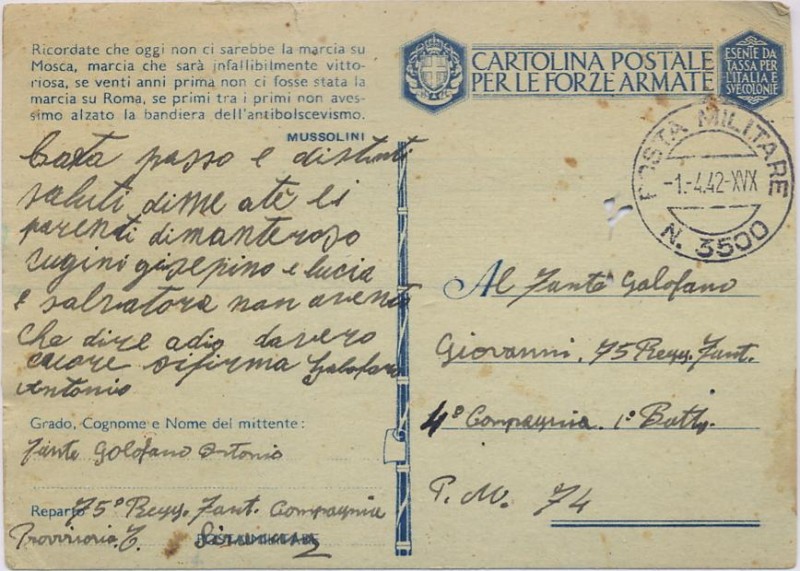 Ricordate che oggi non ci sarebbe la marcia su
Mosca, marcia che sarà infallibilmente vitto-
riosa, se venti anni prima non ci fosse stata la
marcia su Roma, se primi tra i primi non aves-
simo alzato la bandiera dell'antibolscevismo.
MUSSOLINI
CARTOLINA POSTALE
PER LE FORZE ARMATE
ESENTE DA
TASSA PER
L'ITALIA E
SUE COLONIE
POSTA MILITARE
-1.-4.42-XVX
N. 3500
passo e distinti
saluti dime atè li
parenti di manteroso
cugini gisepino e lucia
e salvatora non avendo
che dire adio davero
cuore sifirma Galofano
Antonio
Grado, Cognome e Nome del mittente:
Fante Galofano Antonio
Reparto 75° Regg. Fant. Compagnia
Provvisoria
Al Fante Galofano
Giovanni. 75 Regg. Fant.
4ª Compagnia. 1° Battg.
P. M. 74